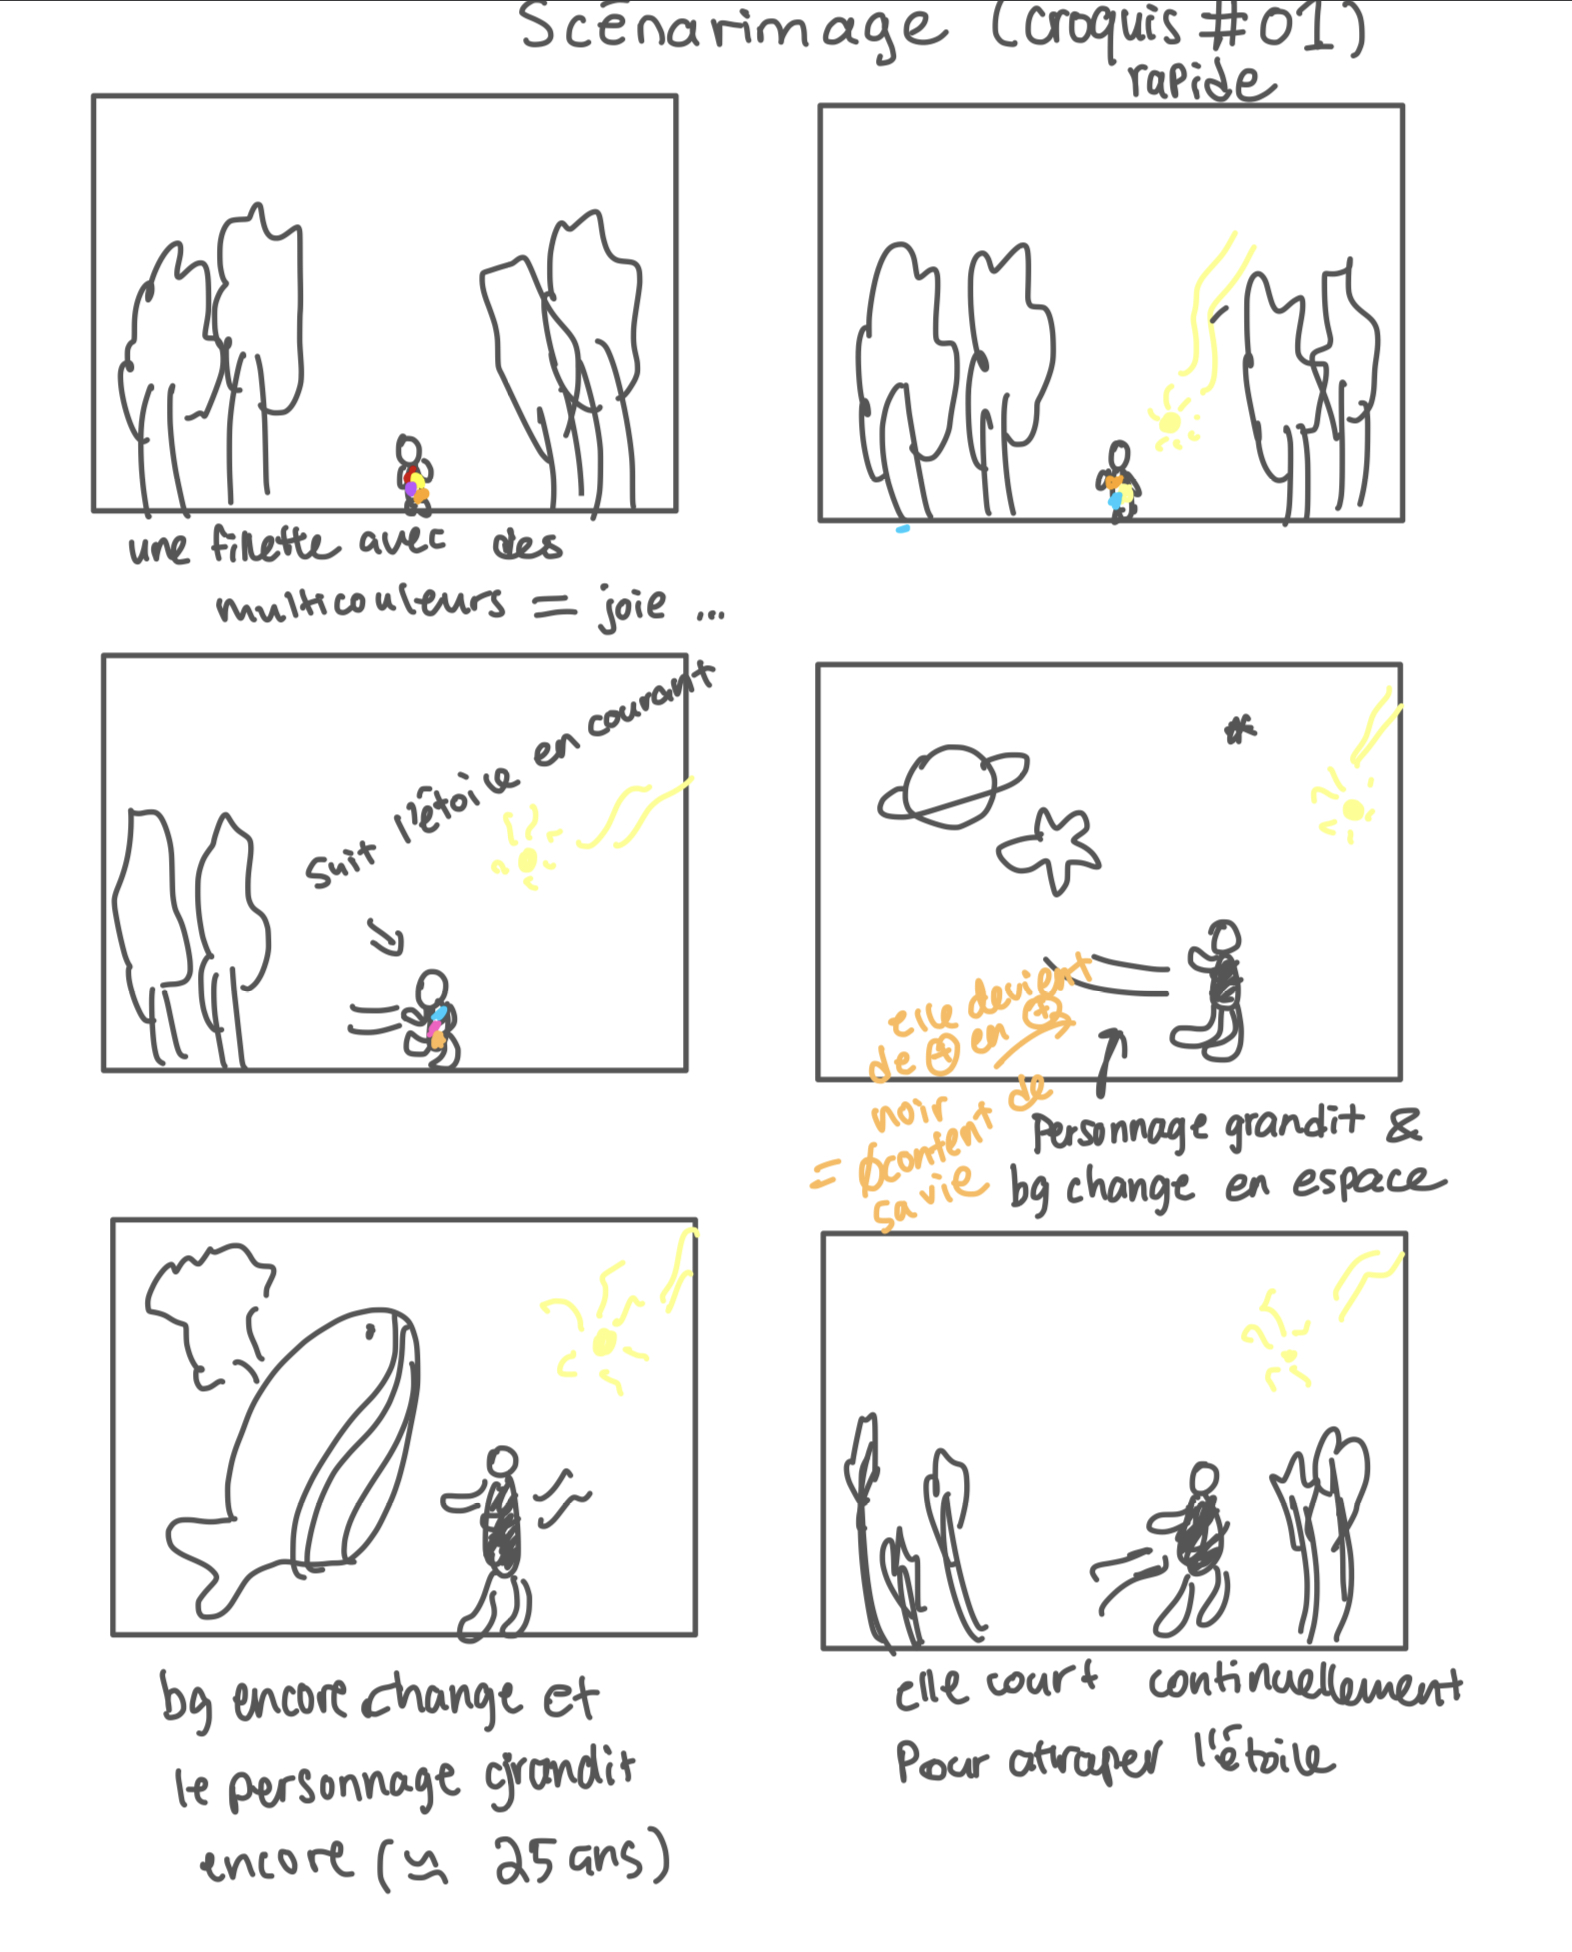 Scénarimage (croquis #01)
rapide
une fillette avec des
multicouleurs = joie ...
suit l'étoile en courant
elle devient
de + en +
noir
= Øcontent de
sa vie
Personnage grandit &
bg change en espace
bg encore change et
le personnage grandit
encore (≃ 25 ans)
elle court continuellement
Pour attraper l'étoile